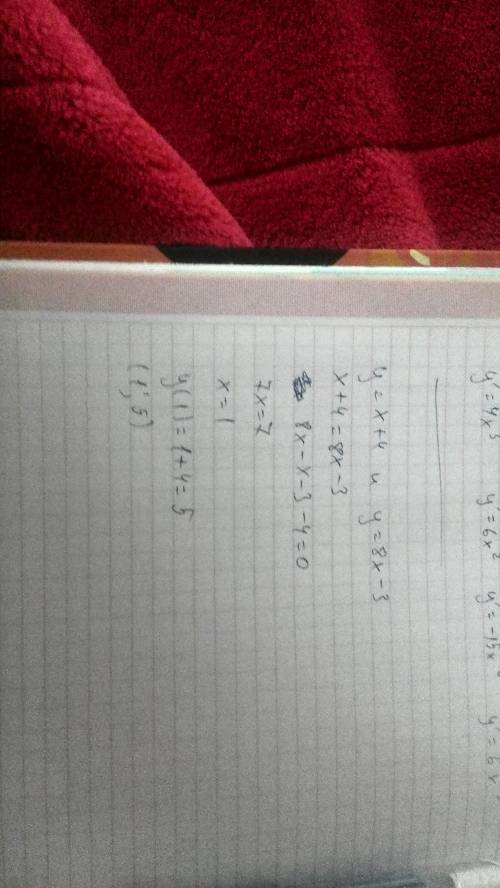 y'=4x³ y'=6x² y'=-15x y'=6x
y=x+4 и y=8x-3
x+4=8x-3
8x-x-3-4=0
7x=7
x=1
y(1)=1+4=5
(1;5)